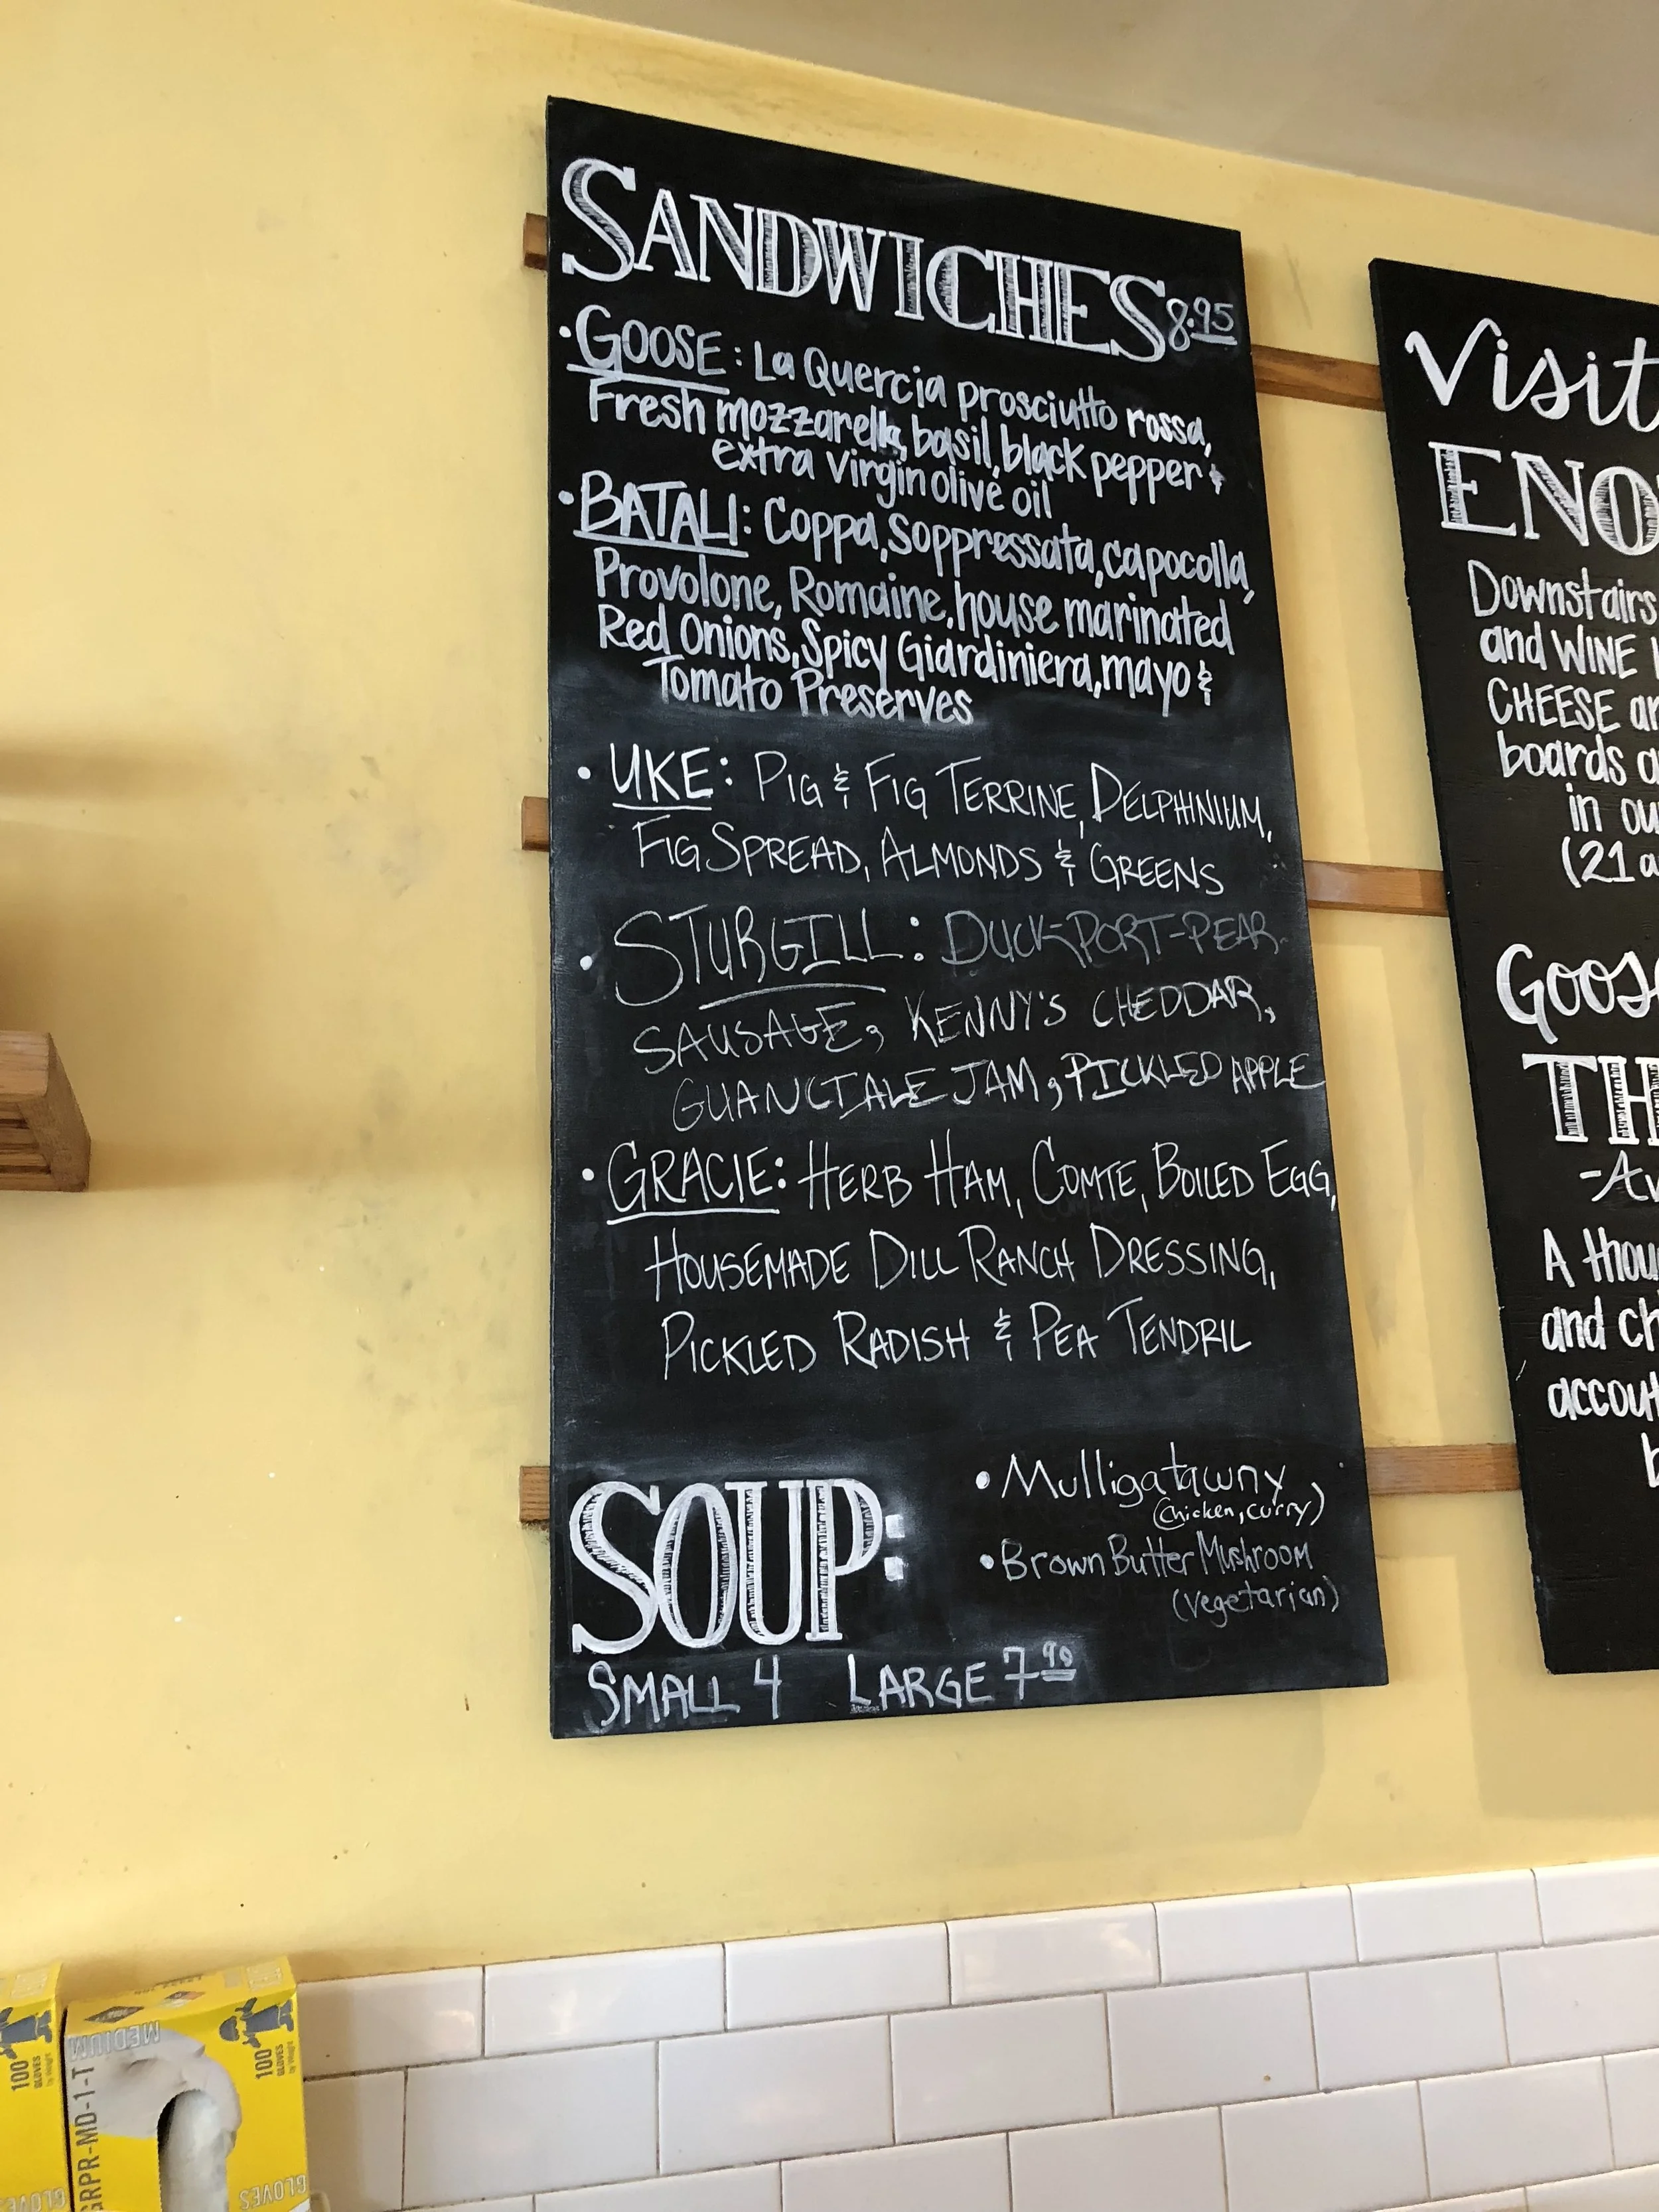 SANDWICHES 8.95
• GOOSE: La Quercia prosciutto rossa,
Fresh mozzarella, basil, black pepper &
extra virgin olive oil
• BATALI: Coppa, Soppressata, capocolla,
Provolone, Romaine, house marinated
Red Onions, Spicy Giardiniera, mayo &
Tomato Preserves
• UKE: PIG & FIG TERRINE, DELPHINIUM,
FIG SPREAD, ALMONDS & GREENS
• STURGILL: DUCK-PORT-PEAR-
SAUSAGE, KENNY'S CHEDDAR,
GUANCIALE JAM, PICKLED APPLE
• GRACIE: HERB HAM, COMTE, BOILED EGG,
HOUSEMADE DILL RANCH DRESSING,
PICKLED RADISH & PEA TENDRIL
SOUP:
• Mulligatawny
(chicken, curry)
• Brown Butter Mushroom
(vegetarian)
SMALL 4 LARGE 7.90
Visit
ENO
Downstairs
and WINE
CHEESE
boards
in
(21
GOOS
TH
A
and
MEDIUM
100
GLOVES
100
GLOVES
GRPR-MD-1-T
GLOVES
GLOVES